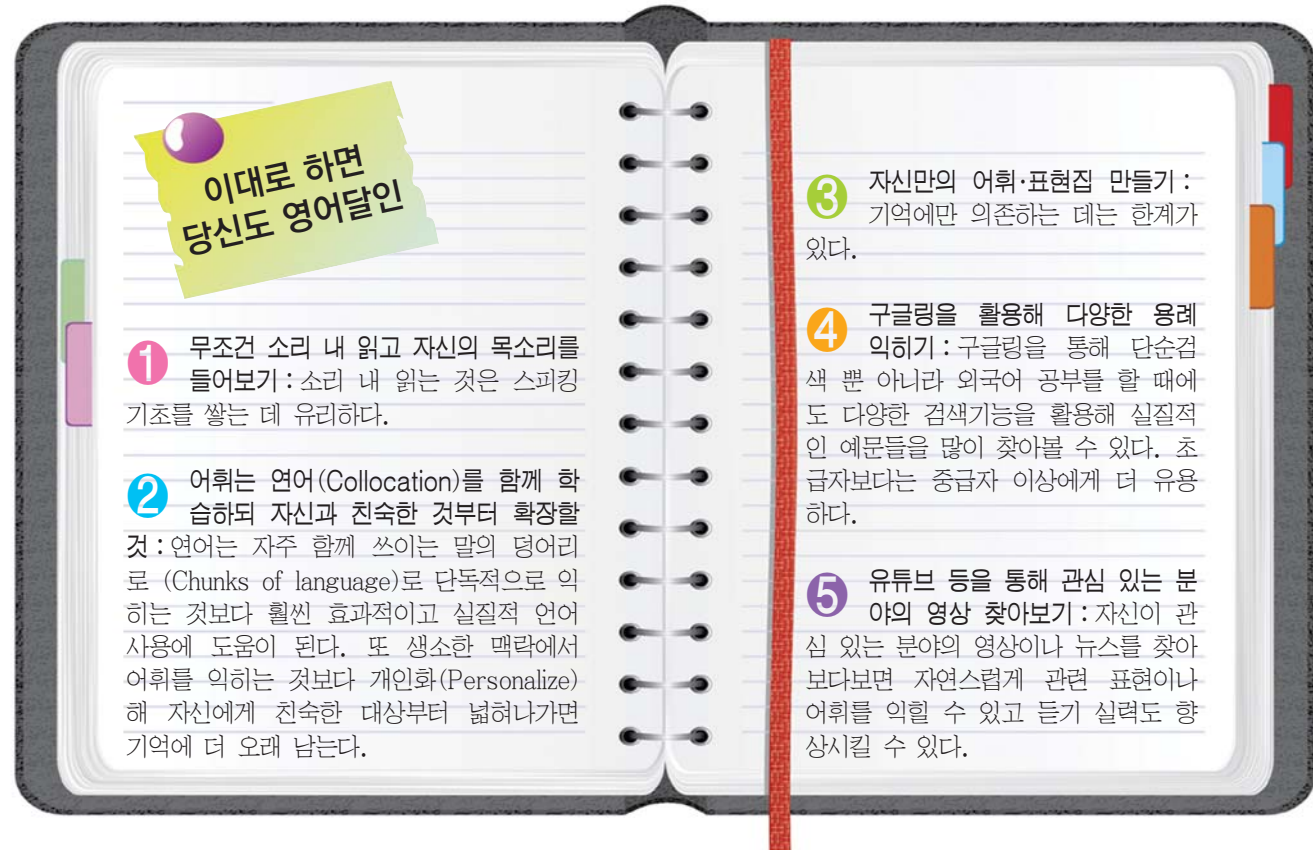 이대로 하면
당신도 영어달인
1 무조건 소리 내 읽고 자신의 목소리를
들어보기 : 소리 내 읽는 것은 스피킹
기초를 쌓는 데 유리하다.
2 어휘는 연어(Collocation)를 함께 학
습하되 자신과 친숙한 것부터 확장할
것 : 연어는 자주 함께 쓰이는 말의 덩어리
로 (Chunks of language)로 단독적으로 익
히는 것보다 훨씬 효과적이고 실질적 언어
사용에 도움이 된다. 또 생소한 맥락에서
어휘를 익히는 것보다 개인화(Personalize)
해 자신에게 친숙한 대상부터 넓혀나가면
기억에 더 오래 남는다.
3 자신만의 어휘·표현집 만들기 :
기억에만 의존하는 데는 한계가
있다.
4 구글링을 활용해 다양한 용례
익히기 : 구글링을 통해 단순검
색 뿐 아니라 외국어 공부를 할 때에
도 다양한 검색기능을 활용해 실질적
인 예문들을 많이 찾아볼 수 있다. 초
급자보다는 중급자 이상에게 더 유용
하다.
5 유튜브 등을 통해 관심 있는 분
야의 영상 찾아보기 : 자신이 관
심 있는 분야의 영상이나 뉴스를 찾아
보다보면 자연스럽게 관련 표현이나
어휘를 익힐 수 있고 듣기 실력도 향
상시킬 수 있다.